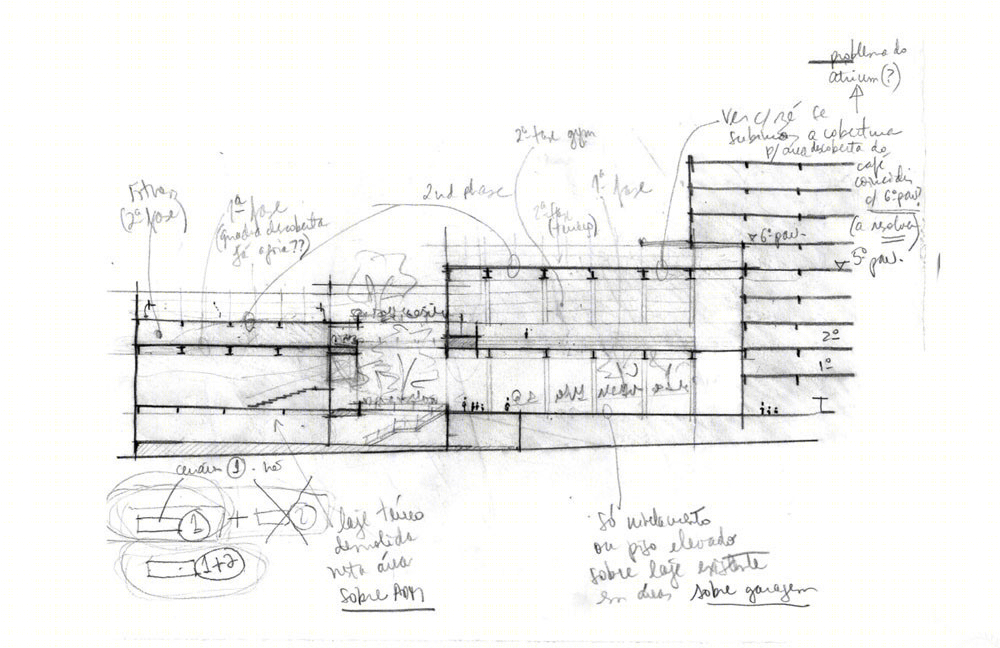 problema do
atrium (?)
Ver c/ Zé se
subimos a cobertura
p/ área descoberta do
café
coincidir
c/ 6º pav?
(a resolver)
2ª fase gym
2nd phase
1ª fase
2ª fase
(térreo)
(2ª fase)
1ª fase
(quadra descoberta
já agora??)
6º pav.
5º pav.
2º
1º
cenário 1 - não
1 + 2
1+2
laje térreo
demolida
nesta área
sobre ADM
só nivelamento
ou piso elevado
sobre laje existente
em áreas sobre garagem